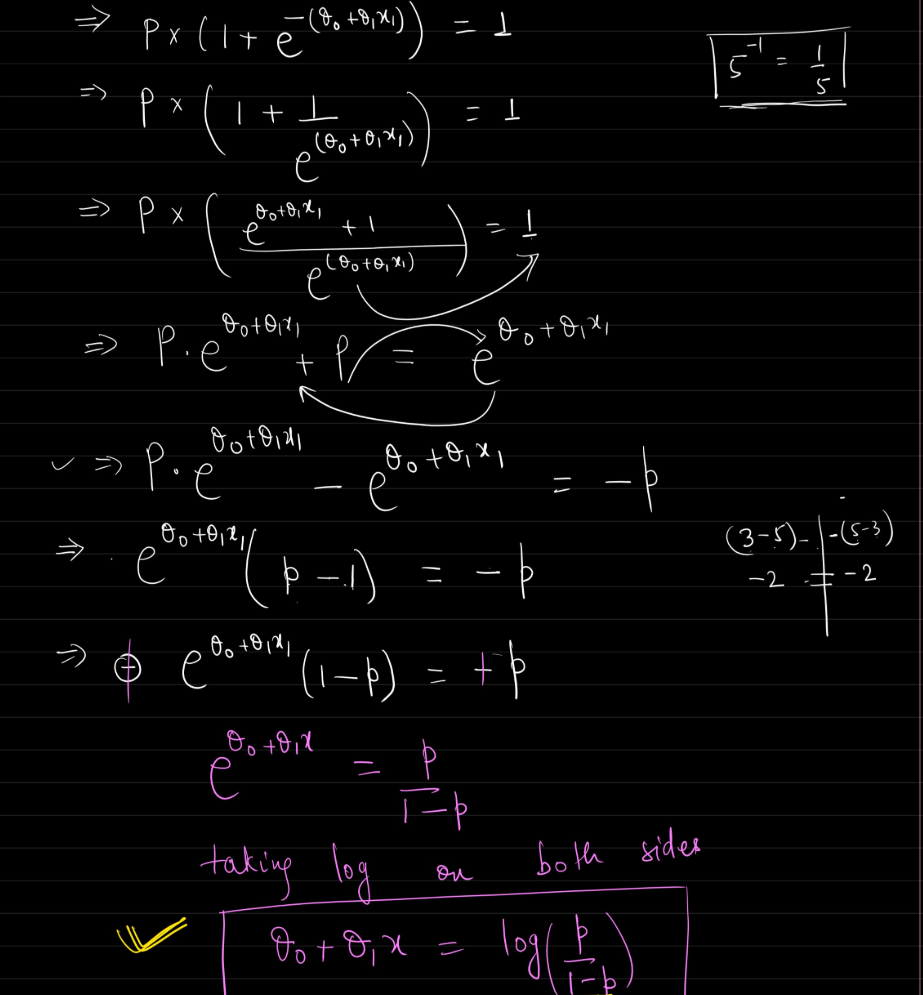 ⇒ P × (1 + e^{-(θ₀+θ₁x₁)}) = 1
5^{-1} = 1/5
⇒ P × (1 + 1/e^{(θ₀+θ₁x₁)}) = 1
⇒ P × ((e^{θ₀+θ₁x₁} + 1)/e^{(θ₀+θ₁x₁)}) = 1
⇒ P. e^{θ₀+θ₁x₁} + P = e^{θ₀+θ₁x₁}
✓ ⇒ P. e^{θ₀+θ₁x₁} - e^{θ₀+θ₁x₁} = -p
(3-5) - | -(5-3)
-2 = -2
⇒ e^{θ₀+θ₁x₁}(p-1) = -p
⇒ + e^{θ₀+θ₁x₁}(1-p) = +p
e^{θ₀+θ₁x} = p/(1-p)
taking log on both sides
✓ θ₀ + θ₁x = log(p/(1-p))